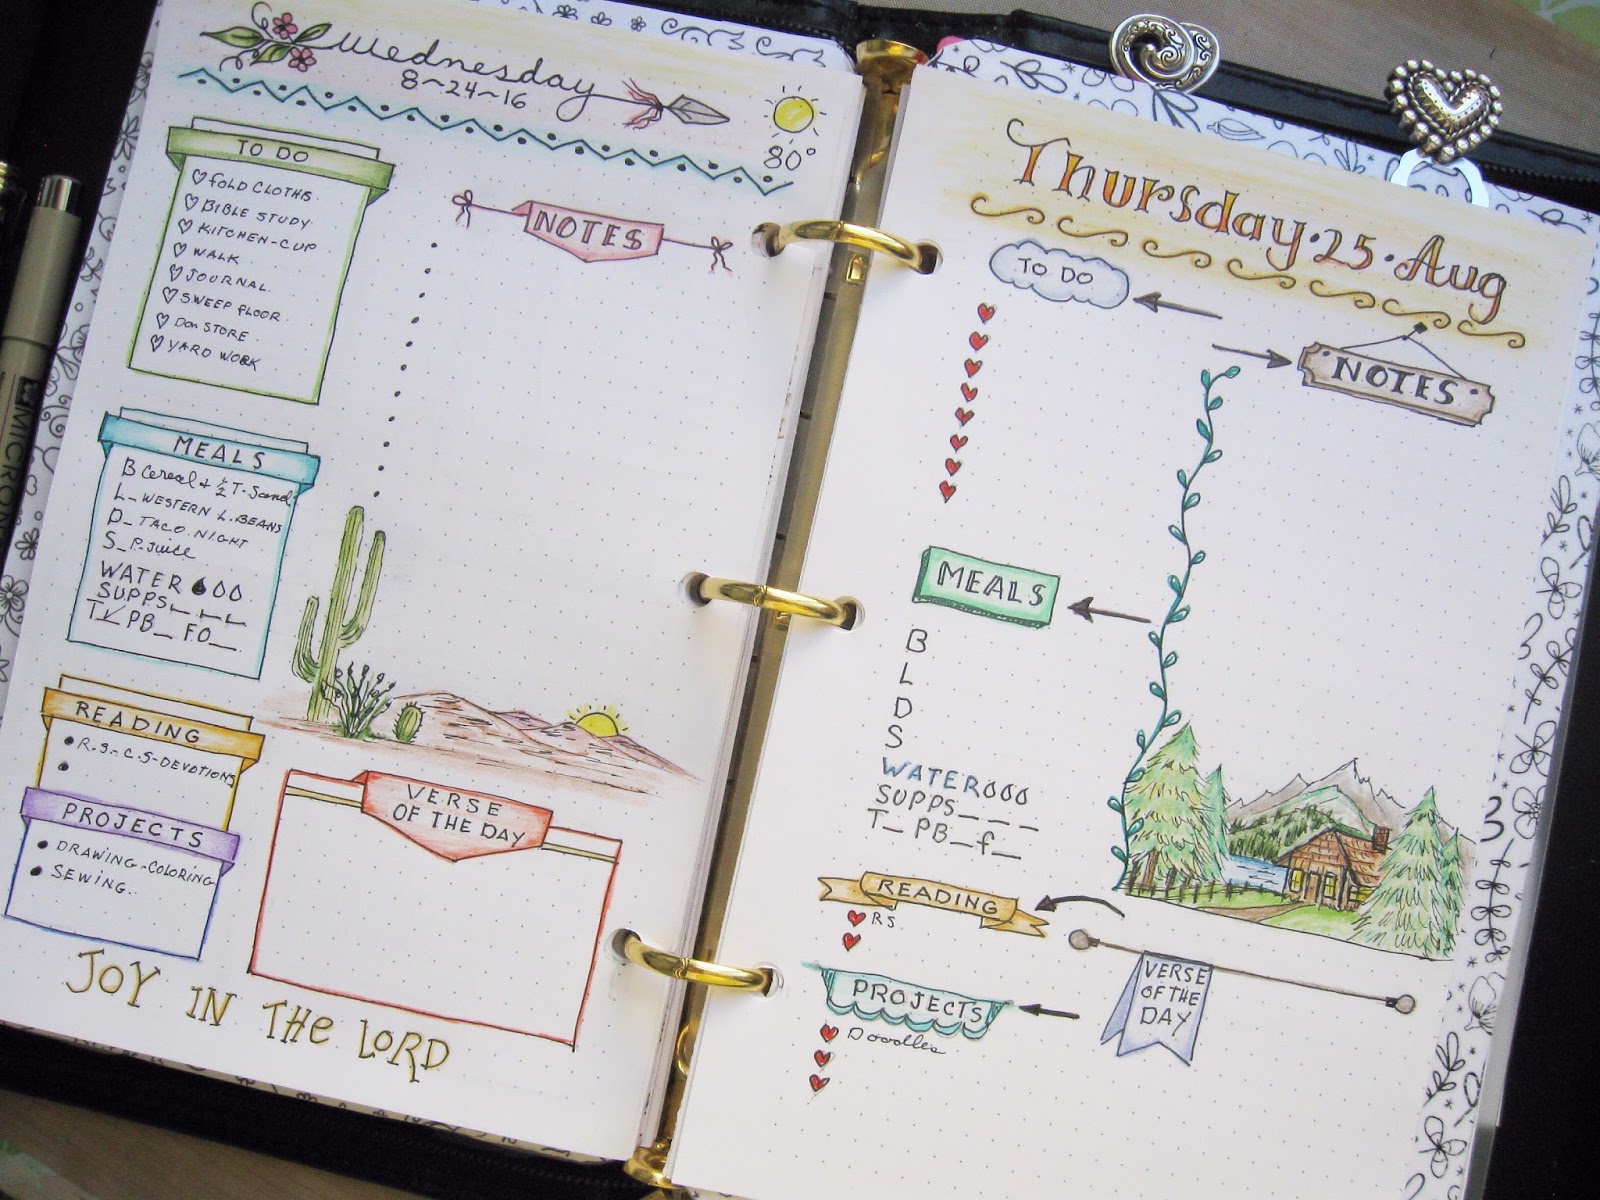 Wednesday
8~24~16
80°
TO DO
FOLD CLOTHS
BIBLE STUDY
KITCHEN-CUP
WALK
JOURNAL
SWEEP FLOOR
STORE
YARD WORK
NOTES
MEALS
B Cereal + ½ T-Sand
L_WESTERN L.BEANS
D_TACO NIGHT
S_P-Juice
WATER
SUPPS _ _ _
T✓ PB_ FO_
READING
R.S.-C.S-DEVOTIONS
PROJECTS
DRAWING-COLORING
SEWING.
VERSE
OF THE DAY
JOY IN THE LORD
MICRON
Thursday·25·Aug
TO DO
NOTES
MEALS
B
L
D
S
WATER
SUPPS_ _ _
T_ PB_f_
READING
RS
PROJECTS
Doodles
VERSE
OF THE
DAY
3
3